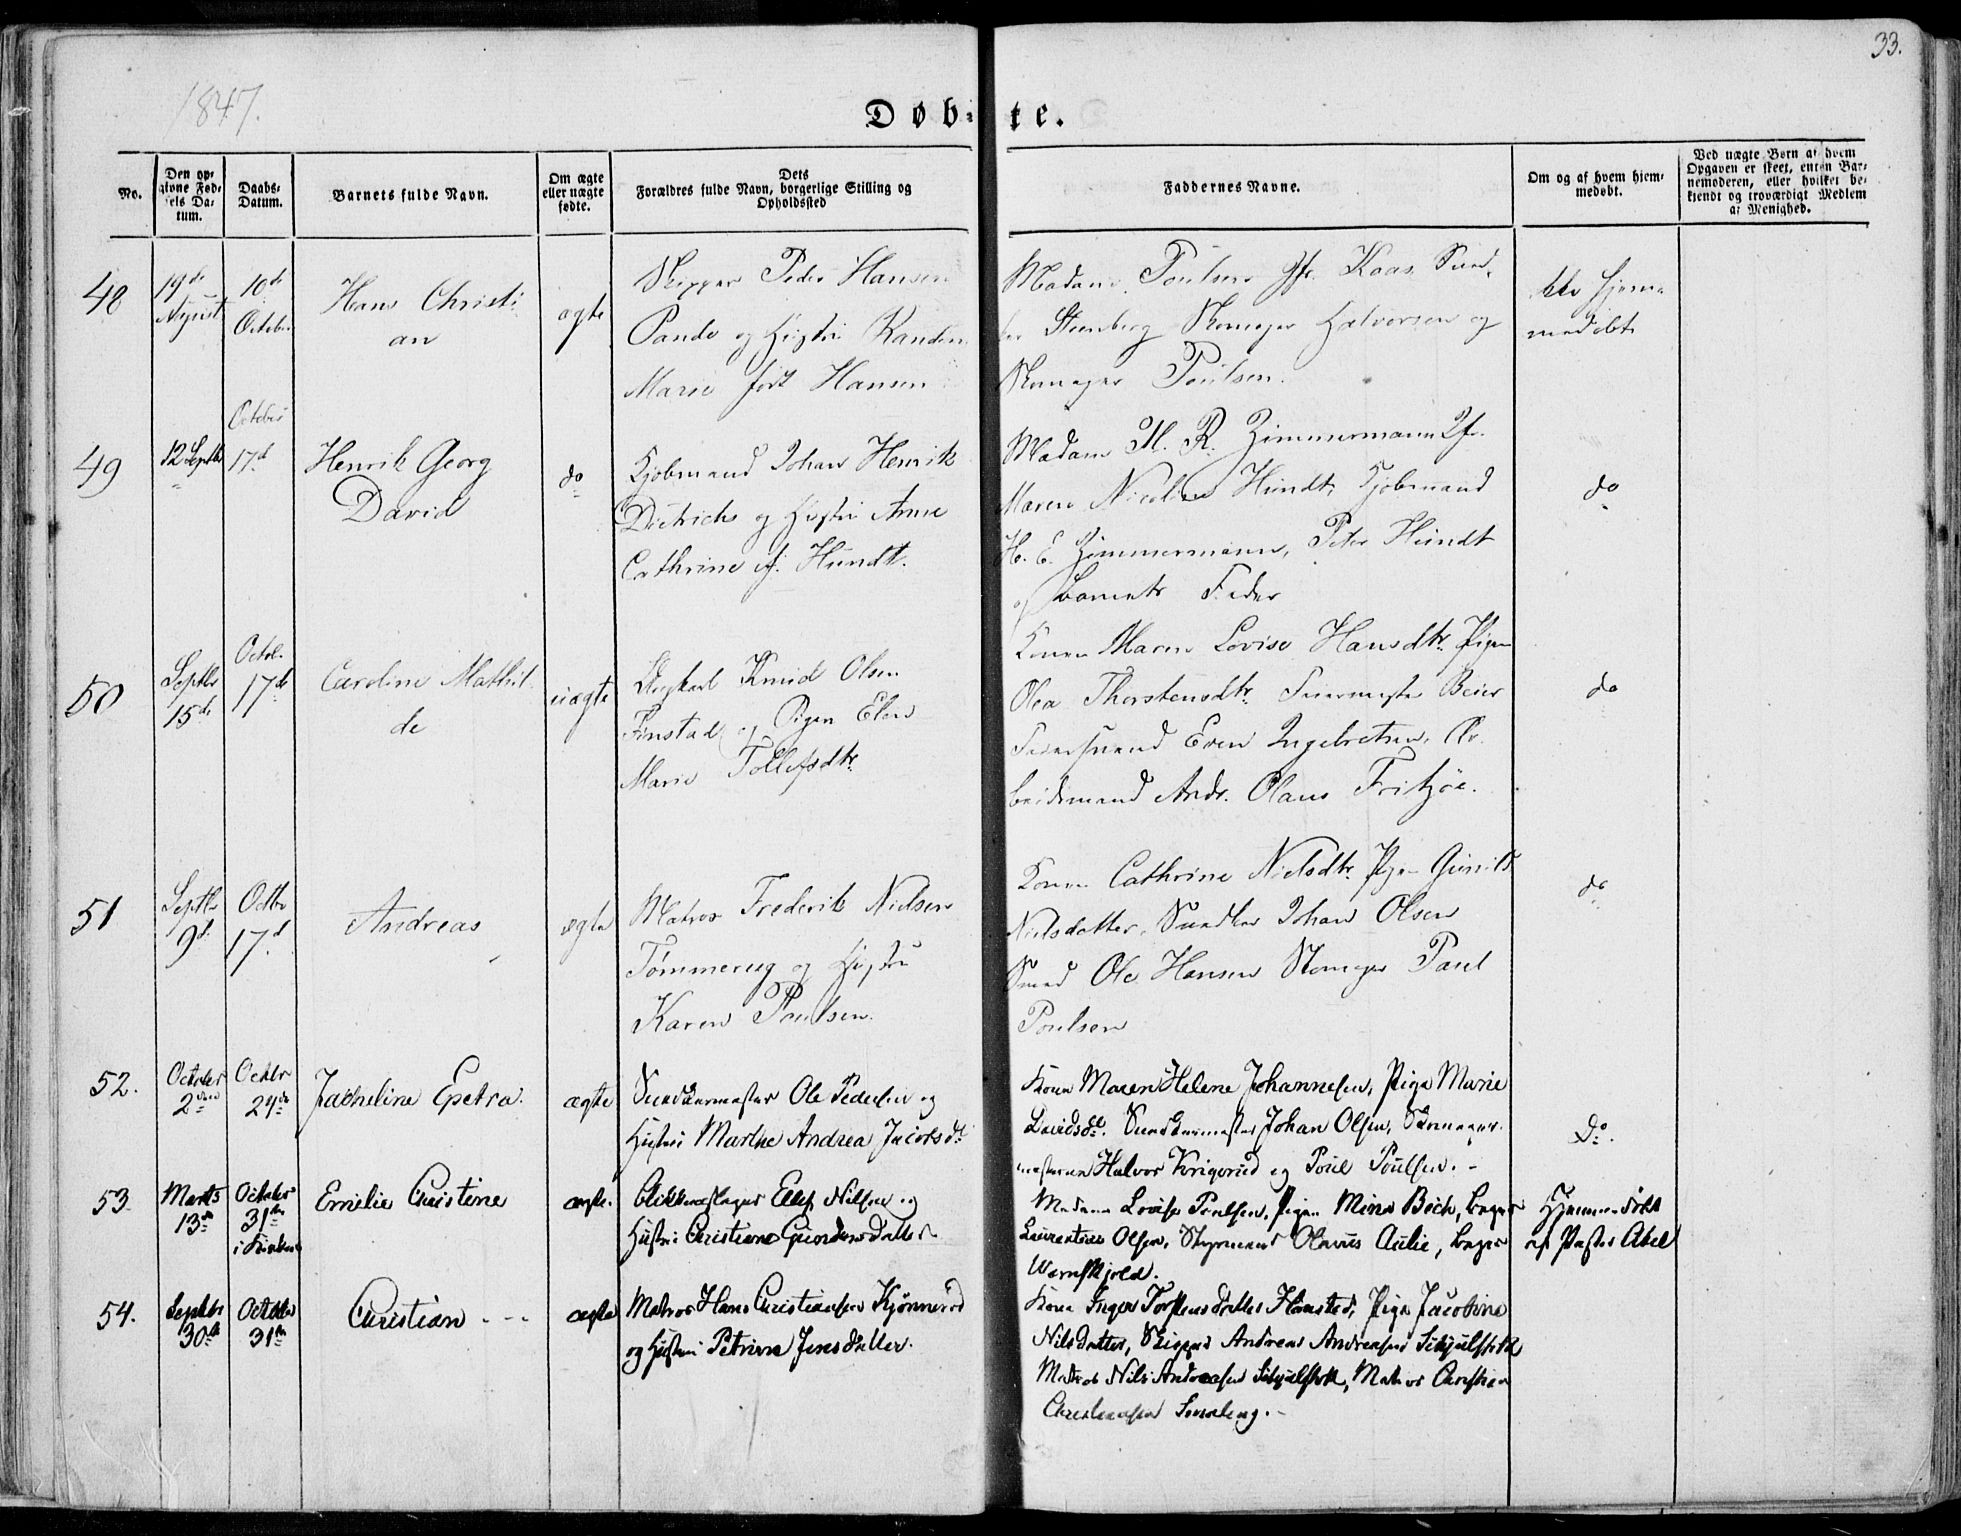 33.
1847.
Døb-
te.
No.
Den op-
givne Fød-
sels Da-
tum.
Daabs-
Datum.
Barnets fulde Navn.
Om ægte
eller uægte
fødte.
Dets
Forældres fulde Navn, borgerlige Stilling og
Opholdssted
Faddernes Navne.
Om og af hvem hjem-
medøbt.
Ved uægte Børn af hvem
Opgaven er skeet, enten Bar-
nemoderen, eller hvilket be-
kjendt og troværdigt Medlem
af Menighed.
48
19de
August
10de
October
Hans Christi-
an
ægte
Skipper Peder Hansen
Pande og Hustru
Marie født Hansen
Madam Poulsen Jfr. Kaas
Steenberg Skomager Halvorsen og
Skomager Poulsen.
ikke hjem-
medøbt
49
12 Septbr
October
17d
Henrik Georg
David
do
Kjøbmand Johan Henrik
Dietrichs og Hustru Anne
Cathrine f. Hundt.
Madam M. R. Zimmermann Jfr.
Maren Nicoline Hundt, Kjøbmand
H. E. Zimmermann, Peter Hundt
og Barnets Fader
do
50
Septbr
15de
Octob.
17de
Caroline Mathil-
de
uægte
Ungkarl Knud Olsen
Finstad og Pigen Elen
Marie Tollefsdtr.
Konen Maren Lovise Hansdtr. Pigen
Olea Thorstensdtr. Beier
Even Ingebretsen, Ar-
beidsmand Andr. Olaus Fritzøe.
do
51
Septbr
9d
Octbr
17d.
Andreas
ægte
Matros Frederik Nielsen
Tømmerug og Hustru
Karen Poulsen.
Konen Cathrine Nielsdtr. Pigen Gunild
Nielsdatter, Snedker Johan Olsen
Smed Ole Hansen Skomager Paul
Poulsen
do
52.
October
2den
Octbr
24de
Jacheline Epetra.
ægte
Snedkermester Ole Pedersen og
Hustru Marthe Andrea Jacobsdt.
Kone Maren Helene Johannesen, Pige Marie
Davidsdt. Snedkermester Johan Olsen, Skomager-
mesterne Halvor Krigerud og Poul Poulsen. -
Do.
53.
Marts
13de
October
31te
i Kirken
Emilie Christine
ægte.
Blikkenslager Ellef Nilsen og
Hustru Christiane Gundersdatter.
Madame Lovise Poulsen, Pigen Mina Boch, Bager
Laurentius Olsen, Styrmand Olavus Aulie, Bager
Wærnskjold.
Hjemmedøbt
af Pastor Abel
54.
Septbr
30te
October
31te
Christian - - -
ægte
Matros Hans Christiansen Kjønnerød
og Hustru Petrine Jensdatter.
Kone Inger Torstensdatter Hansted, Pige Jacobine
Nilsdatter, Skipper Andreas Andreasen
Matros Nils Andreasen Matros Christian
Christiansen